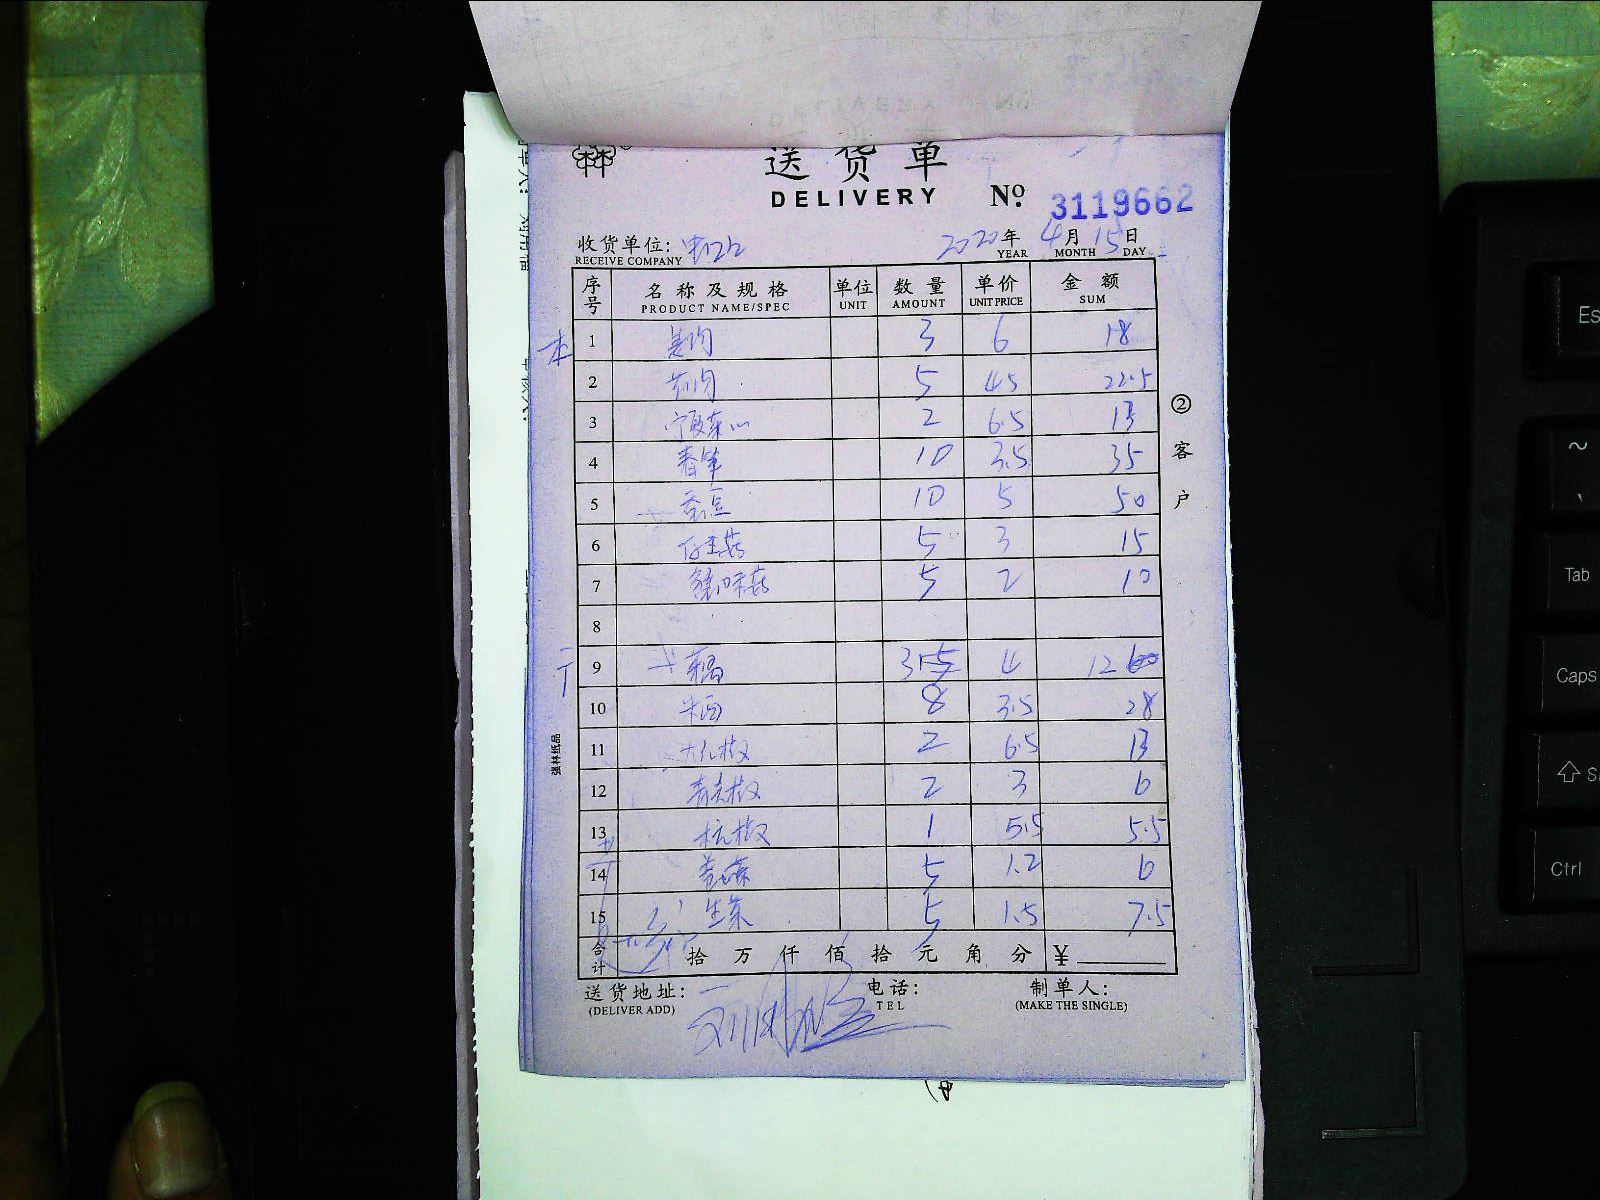 送货单
DELIVERY No. 3119662
收货单位:
RECEIVE COMPANY
2020年 4月 15日
YEAR MONTH DAY
序号 名称及规格 单位 数量 单价 金额
PRODUCT NAME/SPEC UNIT AMOUNT UNIT PRICE SUM
1 3 6 18
2 5 4.5 22.5
3 宁夏菜心 2 6.5 13
4 春笋 10 3.5 35
5 蚕豆 10 5 50
6 5 3 15
7 蟹味菇 5 2 10
8
9 4
10 8 3.5 28
11 2 6.5 13
12 2 3 6
13 杭椒 1 5.5 5.5
14 5 1.2 6
15 生菜 5 1.5 7.5
合计 拾 万 仟 佰 拾 元 角 分 ¥
送货地址: 电话: 制单人:
(DELIVER ADD) TEL (MAKE THE SINGLE)
②客户
强林纸品
Es
~
Tab
Caps
Ctrl